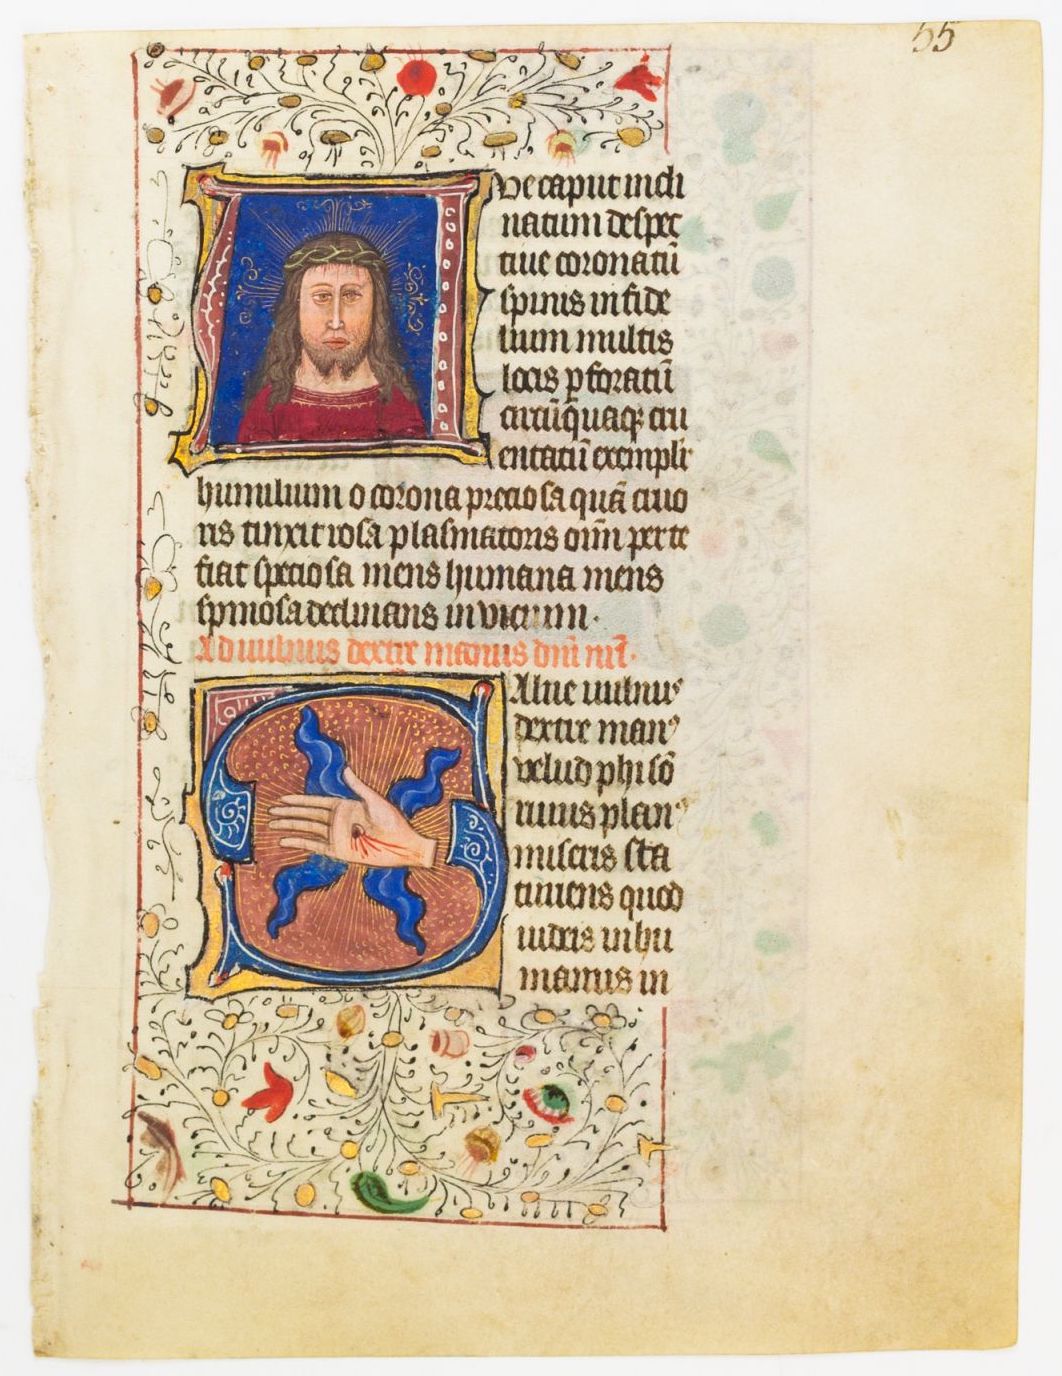 55
ve caput incli
natum despec
tive coronatū
spinis infide
lium multis
locis pforatū
circūquaq; cru
entatū exempli
humilium o corona preciosa quā cruo
ris tinxit rosa plasmatoris oīm per te
fiat speciosa mens humana mens
spinosa declinans in vicium.
Ad vulnus dextre manus dn̄i nr̄i.
Alve vulnus
dextre man⁹
velud phisō
ruius plan⁹
miseris sta
tuiens quod
iudeis
manus in